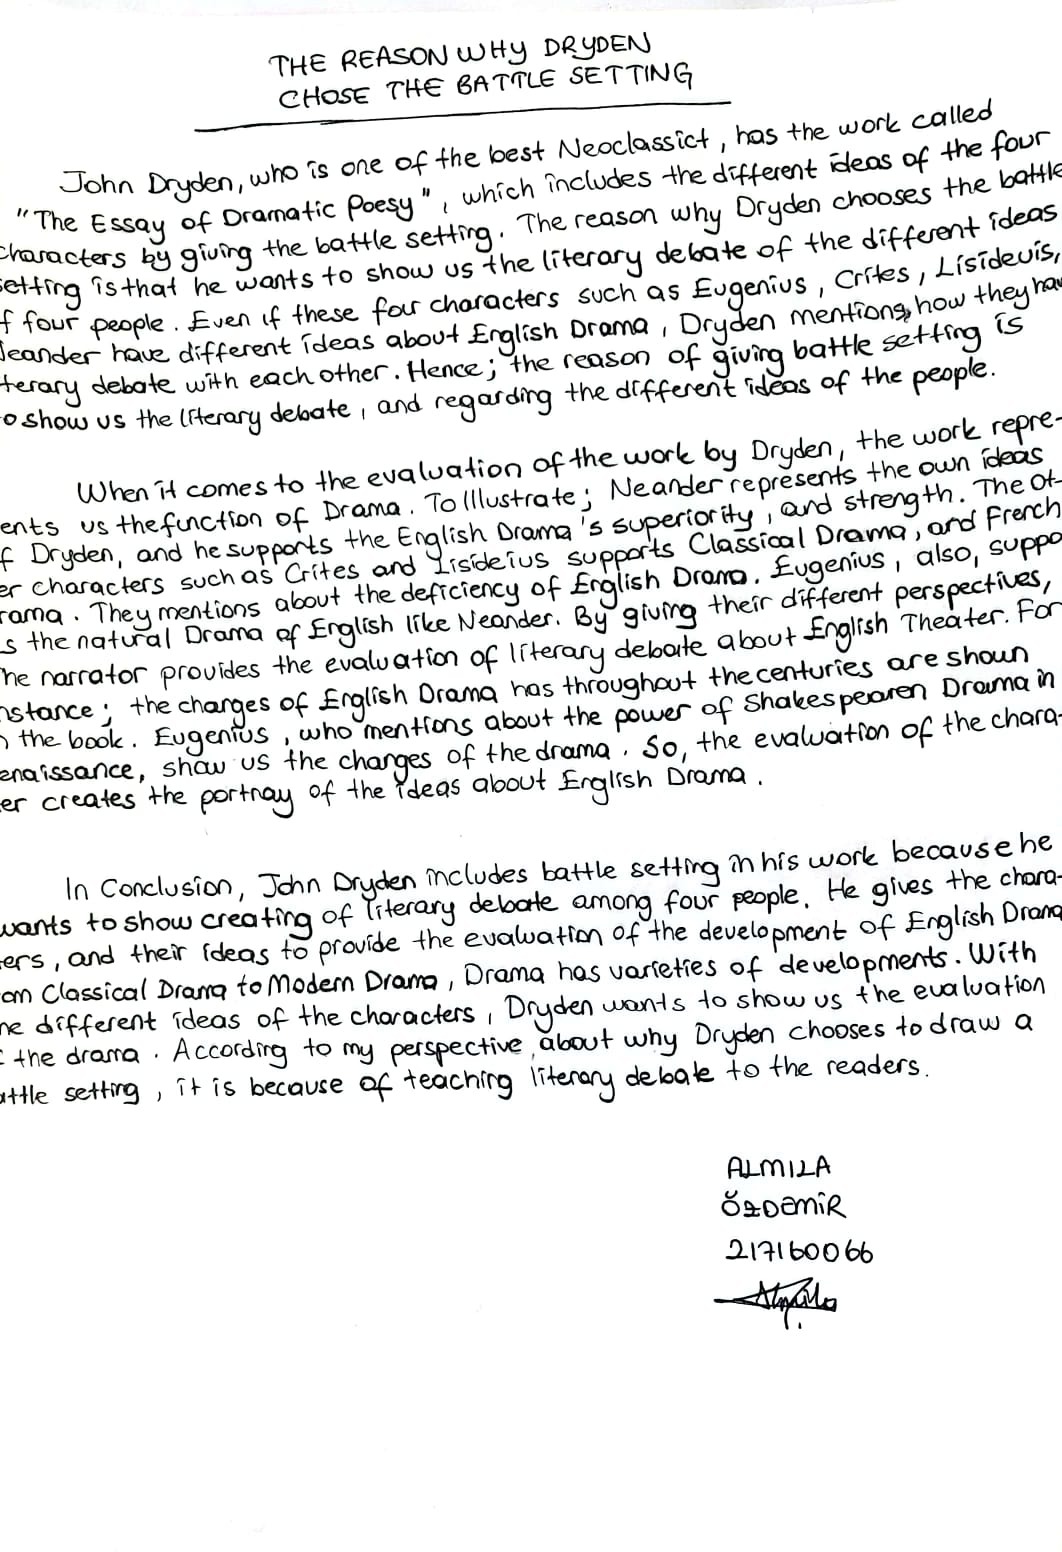 THE REASON WHY DRYDEN
CHOSE THE BATTLE SETTING
John Dryden, who is one of the best Neoclassict, has the work called
"The Essay of Dramatic Poesy", which includes the different ideas of the four
characters by giving the battle setting. The reason why Dryden chooses the battle
etting is that he wants to show us the literary debate of the different ideas
f four people. Even if these four characters such as Eugenius, Crites, Lisidevis,
eander have different ideas about English Drama, Dryden mentions how they hav
terary debate with each other. Hence; the reason of giving battle setting is
o show us the literary debate, and regarding the different ideas of the people.
When it comes to the evaluation of the work by Dryden, the work repre-
ents us the function of Drama. To Illustrate; Neander represents the own ideas
f Dryden, and he supports the English Drama's superiority, and strength. The Ot-
er characters such as Crites and Lisideius supports Classical Drama, and French
rama. They mentions about the deficiency of English Drama. Eugenius, also, suppo
s the natural Drama of English like Neander. By giving their different perspectives,
he narrator provides the evaluation of literary debate about English Theater. For
nstance; the charges of English Drama has throughout the centuries are shown
n the book. Eugenius, who mentions about the power of Shakespearen Drama in
enaissance, show us the changes of the drama. So, the evaluation of the chara-
er creates the portray of the ideas about English Drama.
In Conclusion, John Dryden includes battle setting in his work because he
wants to show creating of literary debate among four people. He gives the chara-
ers, and their ideas to provide the evaluation of the development of English Drama
om Classical Drama to Modern Drama, Drama has varieties of developments. With
he different ideas of the characters, Dryden wants to show us the evaluation
f the drama. According to my perspective about why Dryden chooses to draw a
attle setting, it is because of teaching literary debate to the readers.
ALMILA
ÖZDEMİR
217160066